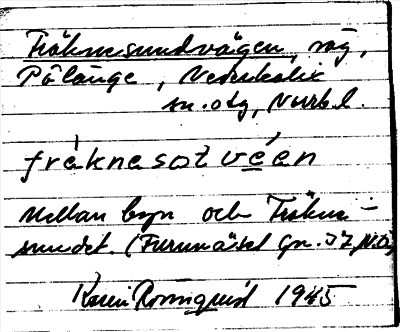 Fröknesundvägen, väg,
Pålänge, Nederkalix
sn. o tg, Nbtn l.
frèknesot véen
Mellan byn och Frökne-
sundet. (Furunäset Gn. 
Karin Rönnquist 1945